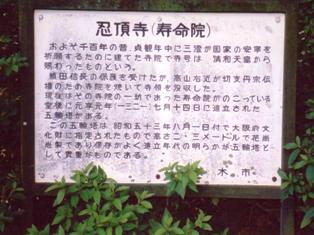 忍頂寺(寿命院)
およそ千百年の昔、貞観年中に三澄が国家の安寧を
祈願するために建てた寺院で寺号は 清和天皇から
賜わったものという。
織田信長の保護を受けたが、高山右近が切支丹宗伝
播のため寺院を焼いて寺領を没収した。
現在はその寺院の一坊であった寿命院がのこっている
堂後に元享元年(一三二一)七月十四日に造立された
五輪塔がある。
この五輪塔は 昭和五十三年八月一日付で大阪府文
化財に指定されたもので高さ二・三メートルで花崗
岩製であり保存がよく造立年代の明らかな五輪塔と
して貴重なものである。
木市